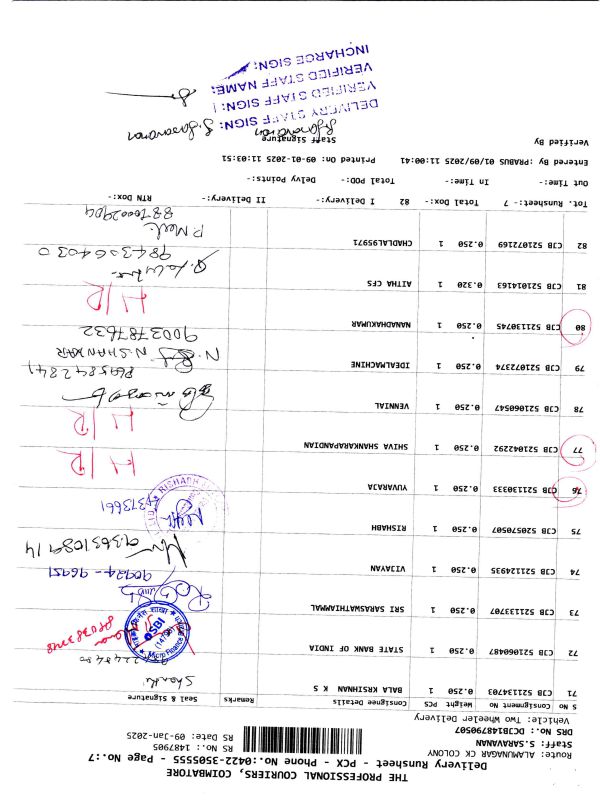 THE PROFESSIONAL COURIERS, COIMBATORE
Delivery Runsheet - PCX - Phone No.:0422-3505555 - Page No.:7
Route: ALAMUNAGAR CK COLONY
Staff: S.SARAVANAN
DRS No.: DCJB148790507
Vehicle: Two Wheeler Delivery
RS No.: 1487905
RS Date: 09-Jan-2025
S No Consignment No Weight PCS Consignee Details Remarks Seal & Signature
71 CJB 521134703 0.250 1 BALA KRSHNAN K S
72 CJB 521060487 0.250 1 STATE BANK OF INDIA
SBI
73 CJB 521133707 0.250 1 SRI SARASWATHIAMMAL
90924-96951
74 CJB 521124935 0.250 1 VIJAYAN
9363108914
75 CJB 520570507 0.250 1 RISHABH
RISHABH
76 CJB 521130333 0.250 1 YUVARAJA H/R
77 CJB 521042292 0.250 1 SHIVA SHANKARAPANDIAN H/R
78 CJB 521060547 0.250 1 VENNIAL
79 CJB 521072374 0.250 1 IDEALMACHINE
8695842841
N.SHANKAR
9003787632
80 CJB 521130745 0.250 1 NANADHAKUMAR H/R
81 CJB 521014163 0.320 1 AITHA CFS
9843064030
82 CJB 521072169 0.250 1 CHADLAL95971
8870002904
Tot. Runsheet:- 7 Total Dox:- 82 I Delivery:- II Delivery:- RTN Dox:-
Out Time:- In Time:- Total POD:- Delvy Points:-
Entered By :PRABUS 01/09/2025 11:00:41 Printed On: 09-01-2025 11:53:51
Verified By Staff Signature
S.Saravanan S.Saravanan
DELIVERY STAFF SIGN:
VERIFIED STAFF SIGN:
VERIFIED STAFF NAME:
INCHARGE SIGN: